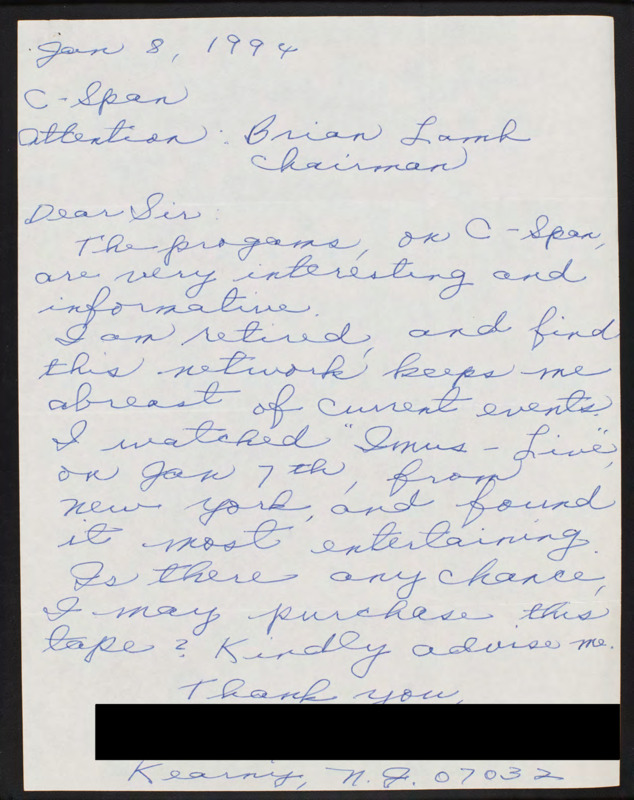 Jan 8, 1994
C-Span
Attention: Brian Lamb
Chairman
Dear Sir
The progams, on C-Span,
are very interesting and
informative.
I am retired, and find
this network keeps me
abreast of current events.
I watched "Imus - Live",
on Jan 7th, from
new york, and found
it most entertaining.
Is there any chance,
I may purchase this
tape? Kindly advise me.
Thank you,
Kearny, N.J. 07032